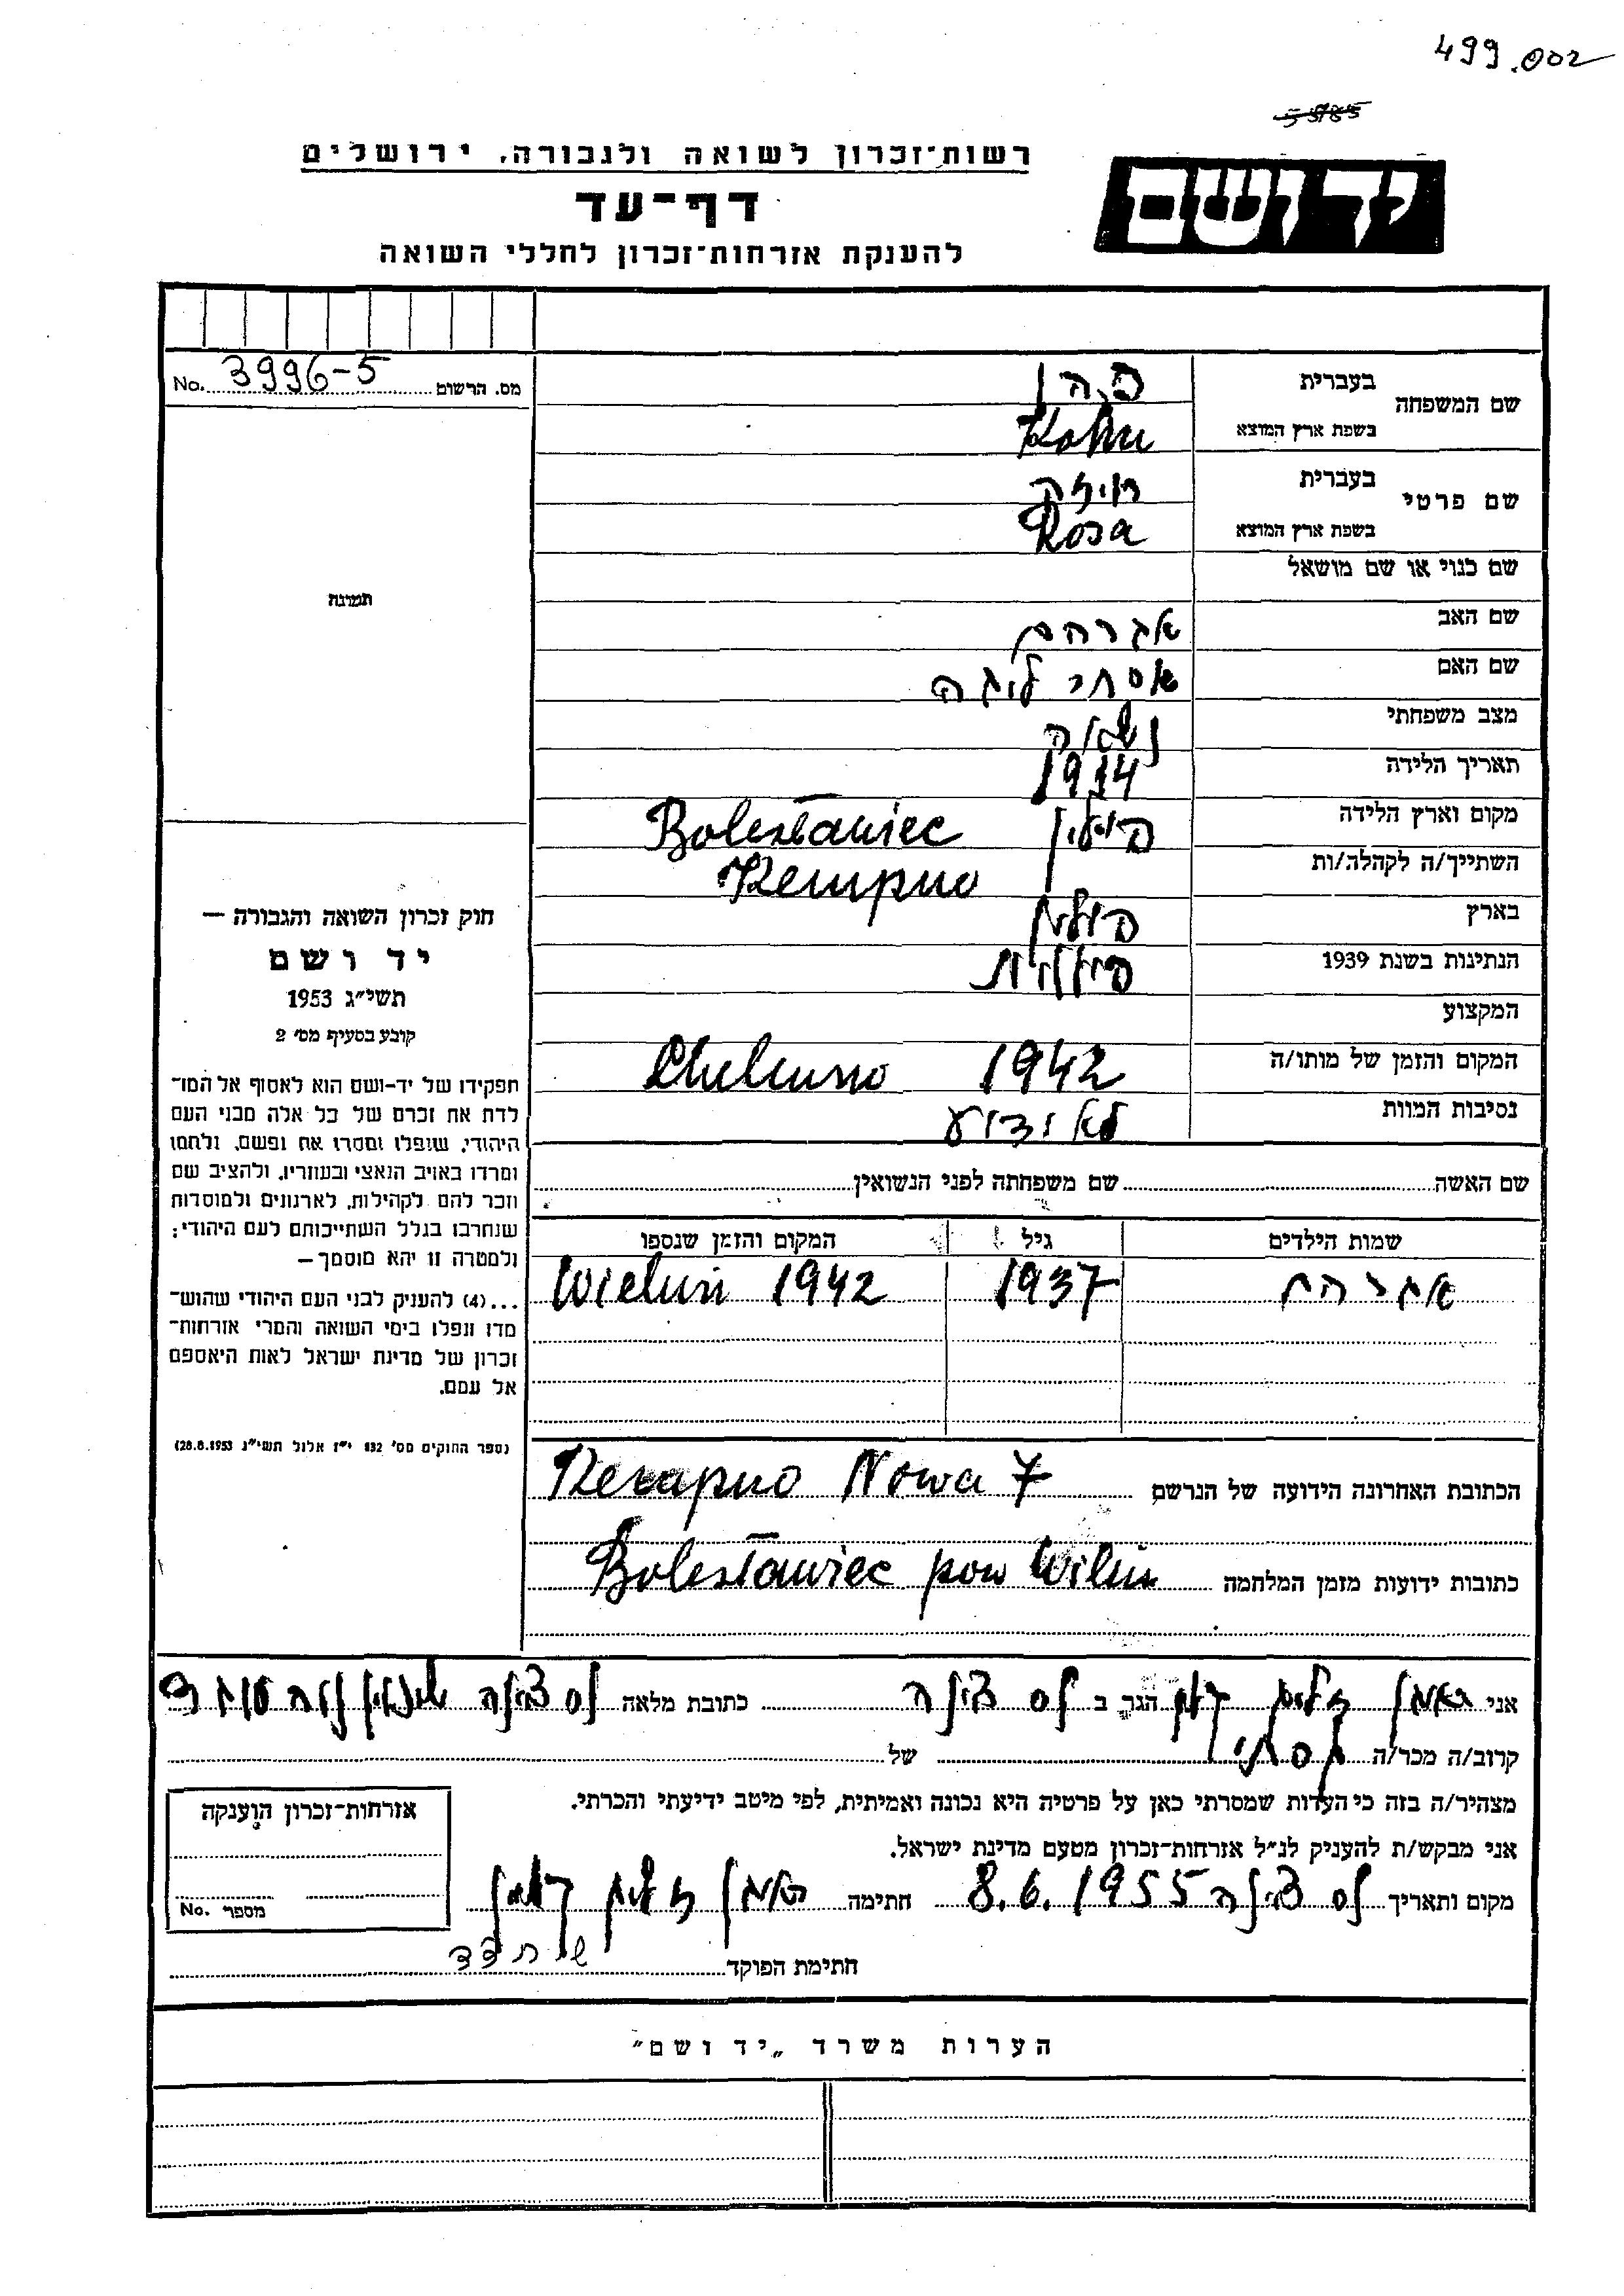 499.002
רשות־זכרון לשואה ולגבורה, ירושלים
יד ושם
דף־עד
להענקת אזרחות־זכרון לחללי השואה
מס. הרשום 3996-5 No.
שם המשפחה
בעברית כהן
בשפת ארץ המוצא Kohn
שם פרטי
בעברית רוזה
בשפת ארץ המוצא Rosa
שם כנוי או שם מושאל
שם האב אברהם
שם האם אסתר ליבה
מצב משפחתי נשואה
תאריך הלידה 1914
מקום וארץ הלידה פולין Bolesławiec
השתייך/ה לקהלה/ות Kempno
בארץ פולין
הנתינות בשנת 1939 פולנית
המקצוע
המקום והזמן של מותו/ה 1942 Chelmno
נסיבות המוות לא ידוע
שם האשה שם משפחתה לפני הנשואין
שמות הילדים גיל המקום והזמן שנספו
אברהם 1937 Wieluń 1942
הכתובת האחרונה הידועה של הנרשם Kempno Nowa 7
כתובות ידועות מזמן המלחמה Bolesławiec pow
תמונה
חוק זכרון השואה והגבורה —
יד ושם
תשי״ג 1953
קובע בסעיף מס׳ 2
תפקידו של יד-ושם הוא לאסוף אל המו־
לדת את זכרם של כל אלה מבני העם
היהודי, שנפלו ומסרו את נפשם, נלחמו
ומרדו באויב הנאצי ובעוזריו, ולהציב שם
וזכר להם לקהילות, לארגונים ולמוסדות
שנחרבו בגלל השתייכותם לעם היהודי;
ולמטרה זו יהא מוסמך —
...(4) להעניק לבני העם היהודי שהוש־
מדו ונפלו בימי השואה והמרי אזרחות־
זכרון של מדינת ישראל לאות היאספם
אל עמם.
(ספר החוקים מס׳ 132 י״ז אלול תשי״ג 28.8.1953)
אני הגר ב כתובת מלאה
קרוב/ה מכר/ה של
מצהיר/ה בזה כי העדות שמסרתי כאן על פרטיה היא נכונה ואמיתית, לפי מיטב ידיעתי והכרתי.
אני מבקש/ת להעניק לנ״ל אזרחות־זכרון מטעם מדינת ישראל.
מקום ותאריך 8.6.1955 חתימה
חתימת הפוקד
אזרחות־זכרון הוענקה
מספר No.
הערות משרד „יד ושם״